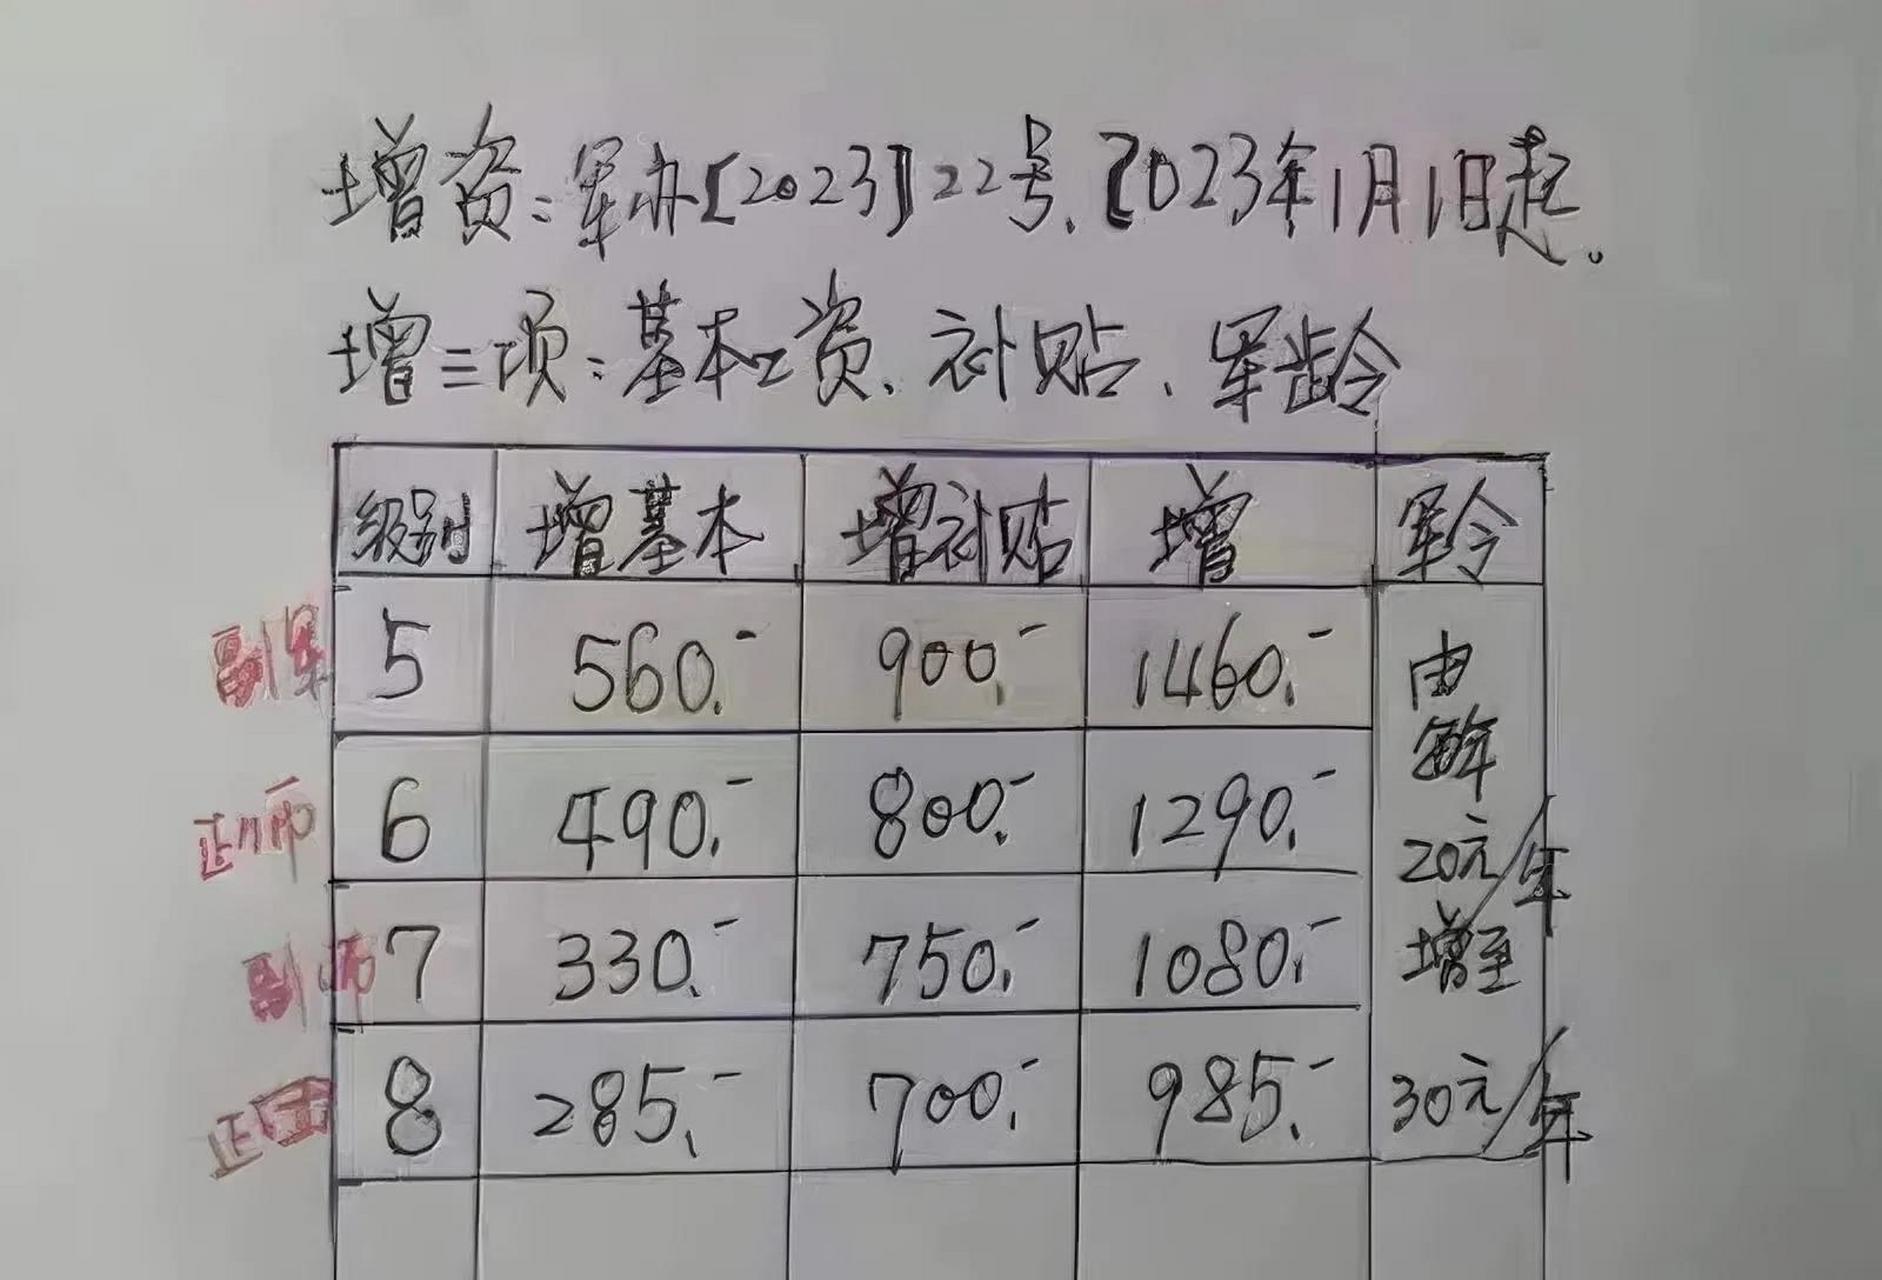 增资:军办[2023]22号、2023年1月1日起。
增三项:基本工资、补贴、军龄
级别 增基本 增补贴 增 军令
副军 5 560.- 900.- 1460.- 由
每年
正师 6 490.- 800.- 1290.- 20元/年
副师 7 330.- 750.- 1080.- 增至
正团 8 285.- 700.- 985.- 30元/年